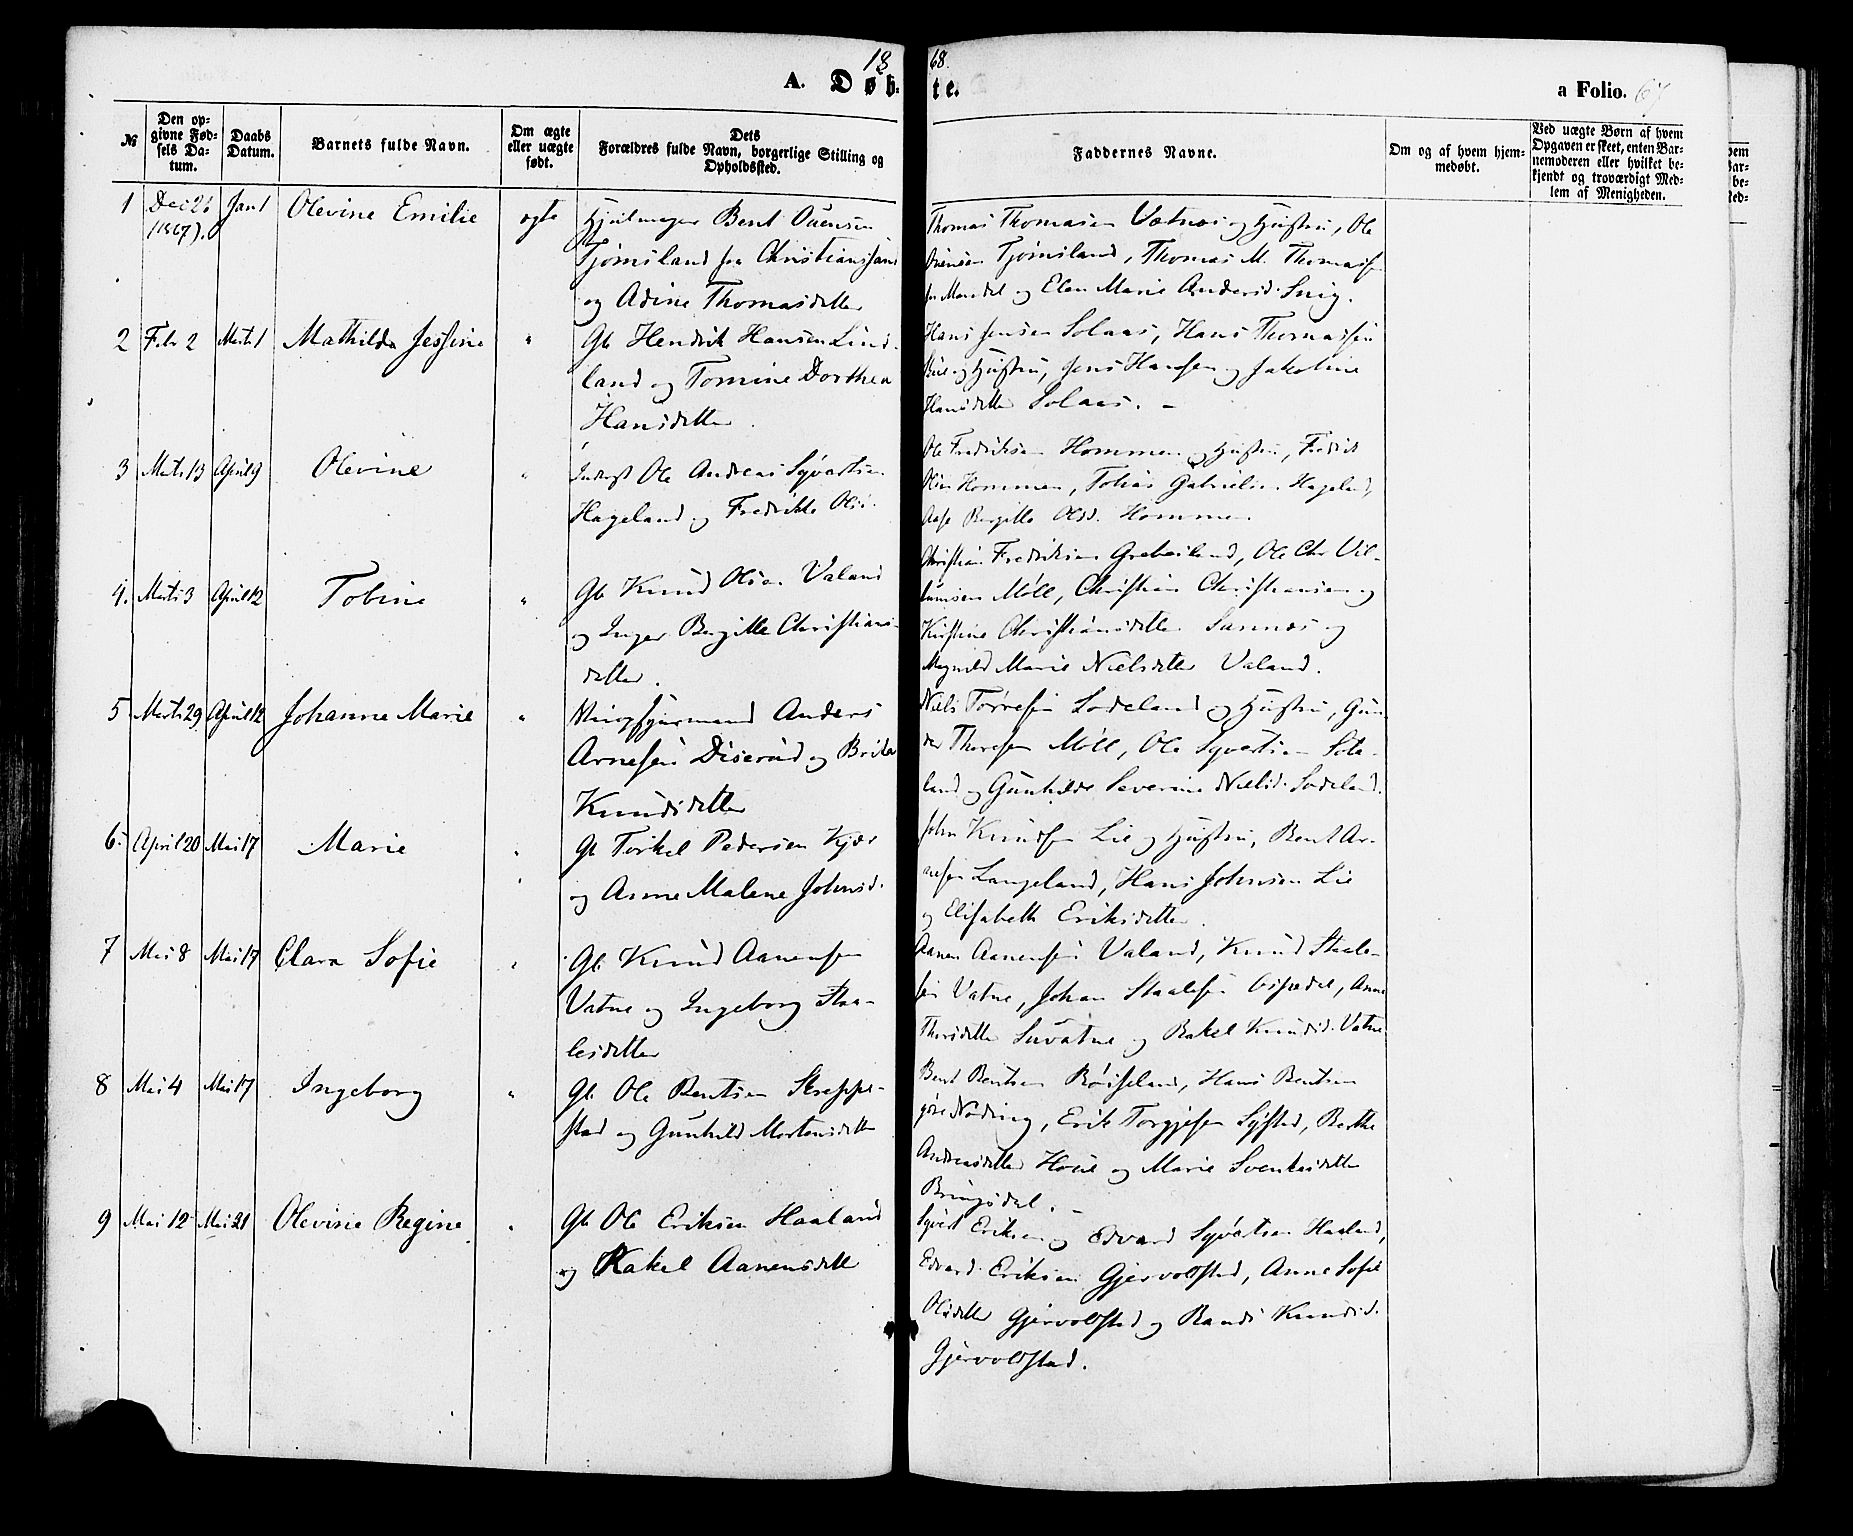 18 68.
A. Døb- te. a Folio. 67
№
Den op-
givne Fød-
sels Da-
tum.
Daabs
Datum.
Barnets fulde Navn.
Om ægte
eller uægte
født.
Dets
Forældres fulde Navn, borgerlige Stilling og
Opholdssted.
Faddernes Navne.
Om og af hvem hjem-
medøbt.
Ved uægte Børn af hvem
Opgaven er skeet, enten Bar-
nemoderen eller hvilket be-
kjendt og troværdigt Med-
lem af Menigheden.
1 Dec 26 Jan 1 Olevine Emilie ægte Hjulmager Bent Ouensen
(1867).
Tjomsland fra Christianssand
og Adine Thomasdatter
Thomas Thomasen Vatnas og Hustru, Ole
Ouensen Tjomsland, Thomas M. Thomas-
sen Mandal og Elen Marie Andersd. Snig.
2 Febr 2 Marts 1 Mathilda Jessine " Gb Hendrik Hansen Lind-
land og Tomine Dorthea
Hansdatter
Hans Jensen Solaas, Hans Thomassen
Bue og Hustru, Jens Hansen og Jakobine
Hansdatter Solaas. –
3 Marts 13 April 9 Olevine " Inderst Ole Andreas Syvertsen
Hageland og Fredrikke Olsd.
Ole Fredriksen Hommen og Hustru, Fredrik
Olsen Hommen, Tobias Gabrielsen Hageland,
Aase Birgitte Olsd. Hommen
4. Marts 3 April 12 Tobine " Gb Knud Olsen Valand
og Inger Birgitte Christians-
datter.
Christian Fredriksen Grebesland, Ole Chr Vil-
lumsen Möll, Christian Christiansen og
Kirstine Christiansdatter Sannæs og
Magnild Marie Nielsdatter Valand.
5 Marts 29 April 12 Johanne Marie " Anders
Arnesen Diserud og Brita
Knudsdatter
Niels Torresen Lodeland og Hustru, Gun-
der Thoresen Möll, Ole Syvertsen Sode-
land og Gunhilde Severine Nielsd. Sodeland.
6. April 20 Mai 17 Marie " Gb Torkel Pedersen Kjær
og Anne Malene Johnsd.
John Knudsen Lie og Hustru, Bent Ar-
nesen Langeland, Hans Johnsen Lie
og Elisabeth Eriksdatter.
7 Mai 8 Mai 17 Clara Sofie " Gb. Knud Aanensen
Vatne og Ingeborg Staa-
lesdatter
Aanen Aanensen Valand, Knud Staale-
sen Vatne, Johan Staalesen Espedal, Anne
Thorsdatter Suvatne og Rakel Knudsd. Vatne
8 Mai 4 Mai 17 Ingeborg " Gb. Ole Bentsen Skreppe-
stad og Gunhild Mortensdatter
Bent Bentsen Röiseland, Hans Bentsen
Nöding, Erik Torgjesen Syfstad, Berthe
Andreasdatter Houe og Marie Svenkesdatter
Bringsdal. –
9 Mai 12 Mai 21 Olevine Regine " Gb Ole Eriksen Haaland
og Rakel Aanensdatt
Syvert Eriksen og Edvard Syvertsen Haaland,
Edvard Eriksen Gjervoldstad, Anne Sofie
Olsdatter Gjervoldstad og Randi Knudsd.
Gjervoldstad.